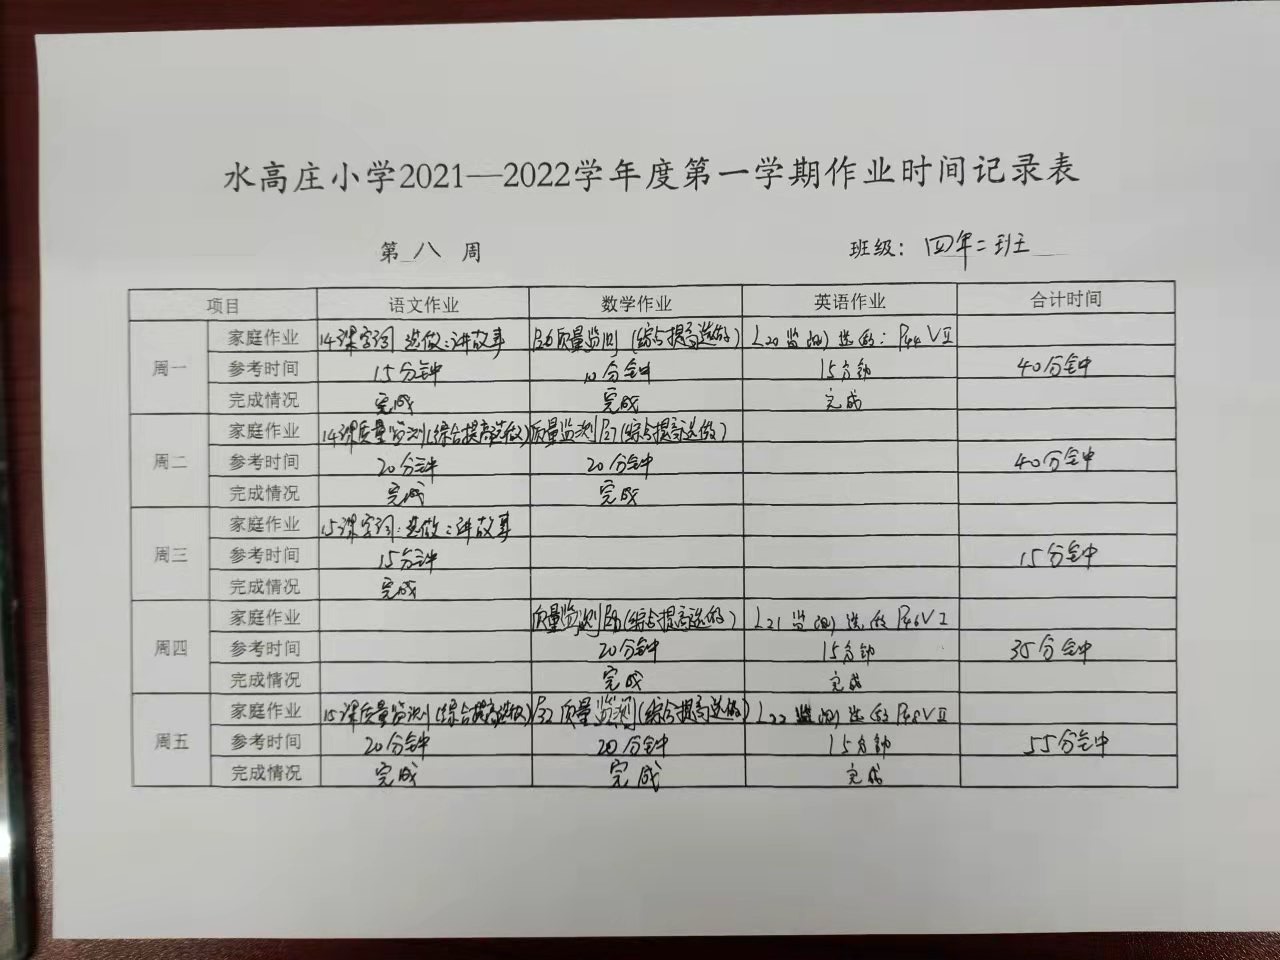 水高庄小学2021—2022学年度第一学期作业时间记录表
第 八 周 班级: 四年二班
项目 语文作业 数学作业 英语作业 合计时间
周一
家庭作业 14课字词 选做:讲故事 P26质量监测 (综合提高选做) L20 监测 选做: P44 VII
参考时间 15分钟 10分钟 15分钟 40分钟
完成情况 完成 完成 完成
周二
家庭作业 14课质量监测(综合提高选做) 质量监测P27(综合提高选做)
参考时间 20分钟 20分钟 40分钟
完成情况 完成 完成
周三
家庭作业 15课字词:选做:讲故事
参考时间 15分钟 15分钟
完成情况 完成
周四
家庭作业 质量监测 (综合提高选做) L21 监测 选做 P46 V I
参考时间 20分钟 15分钟 35分钟
完成情况 完成 完成
周五
家庭作业 15课质量监测(综合提高选做) P32 质量监测(综合提高选做) L22 监测 选做 P48 VII
参考时间 20分钟 20分钟 15分钟 55分钟
完成情况 完成 完成 完成